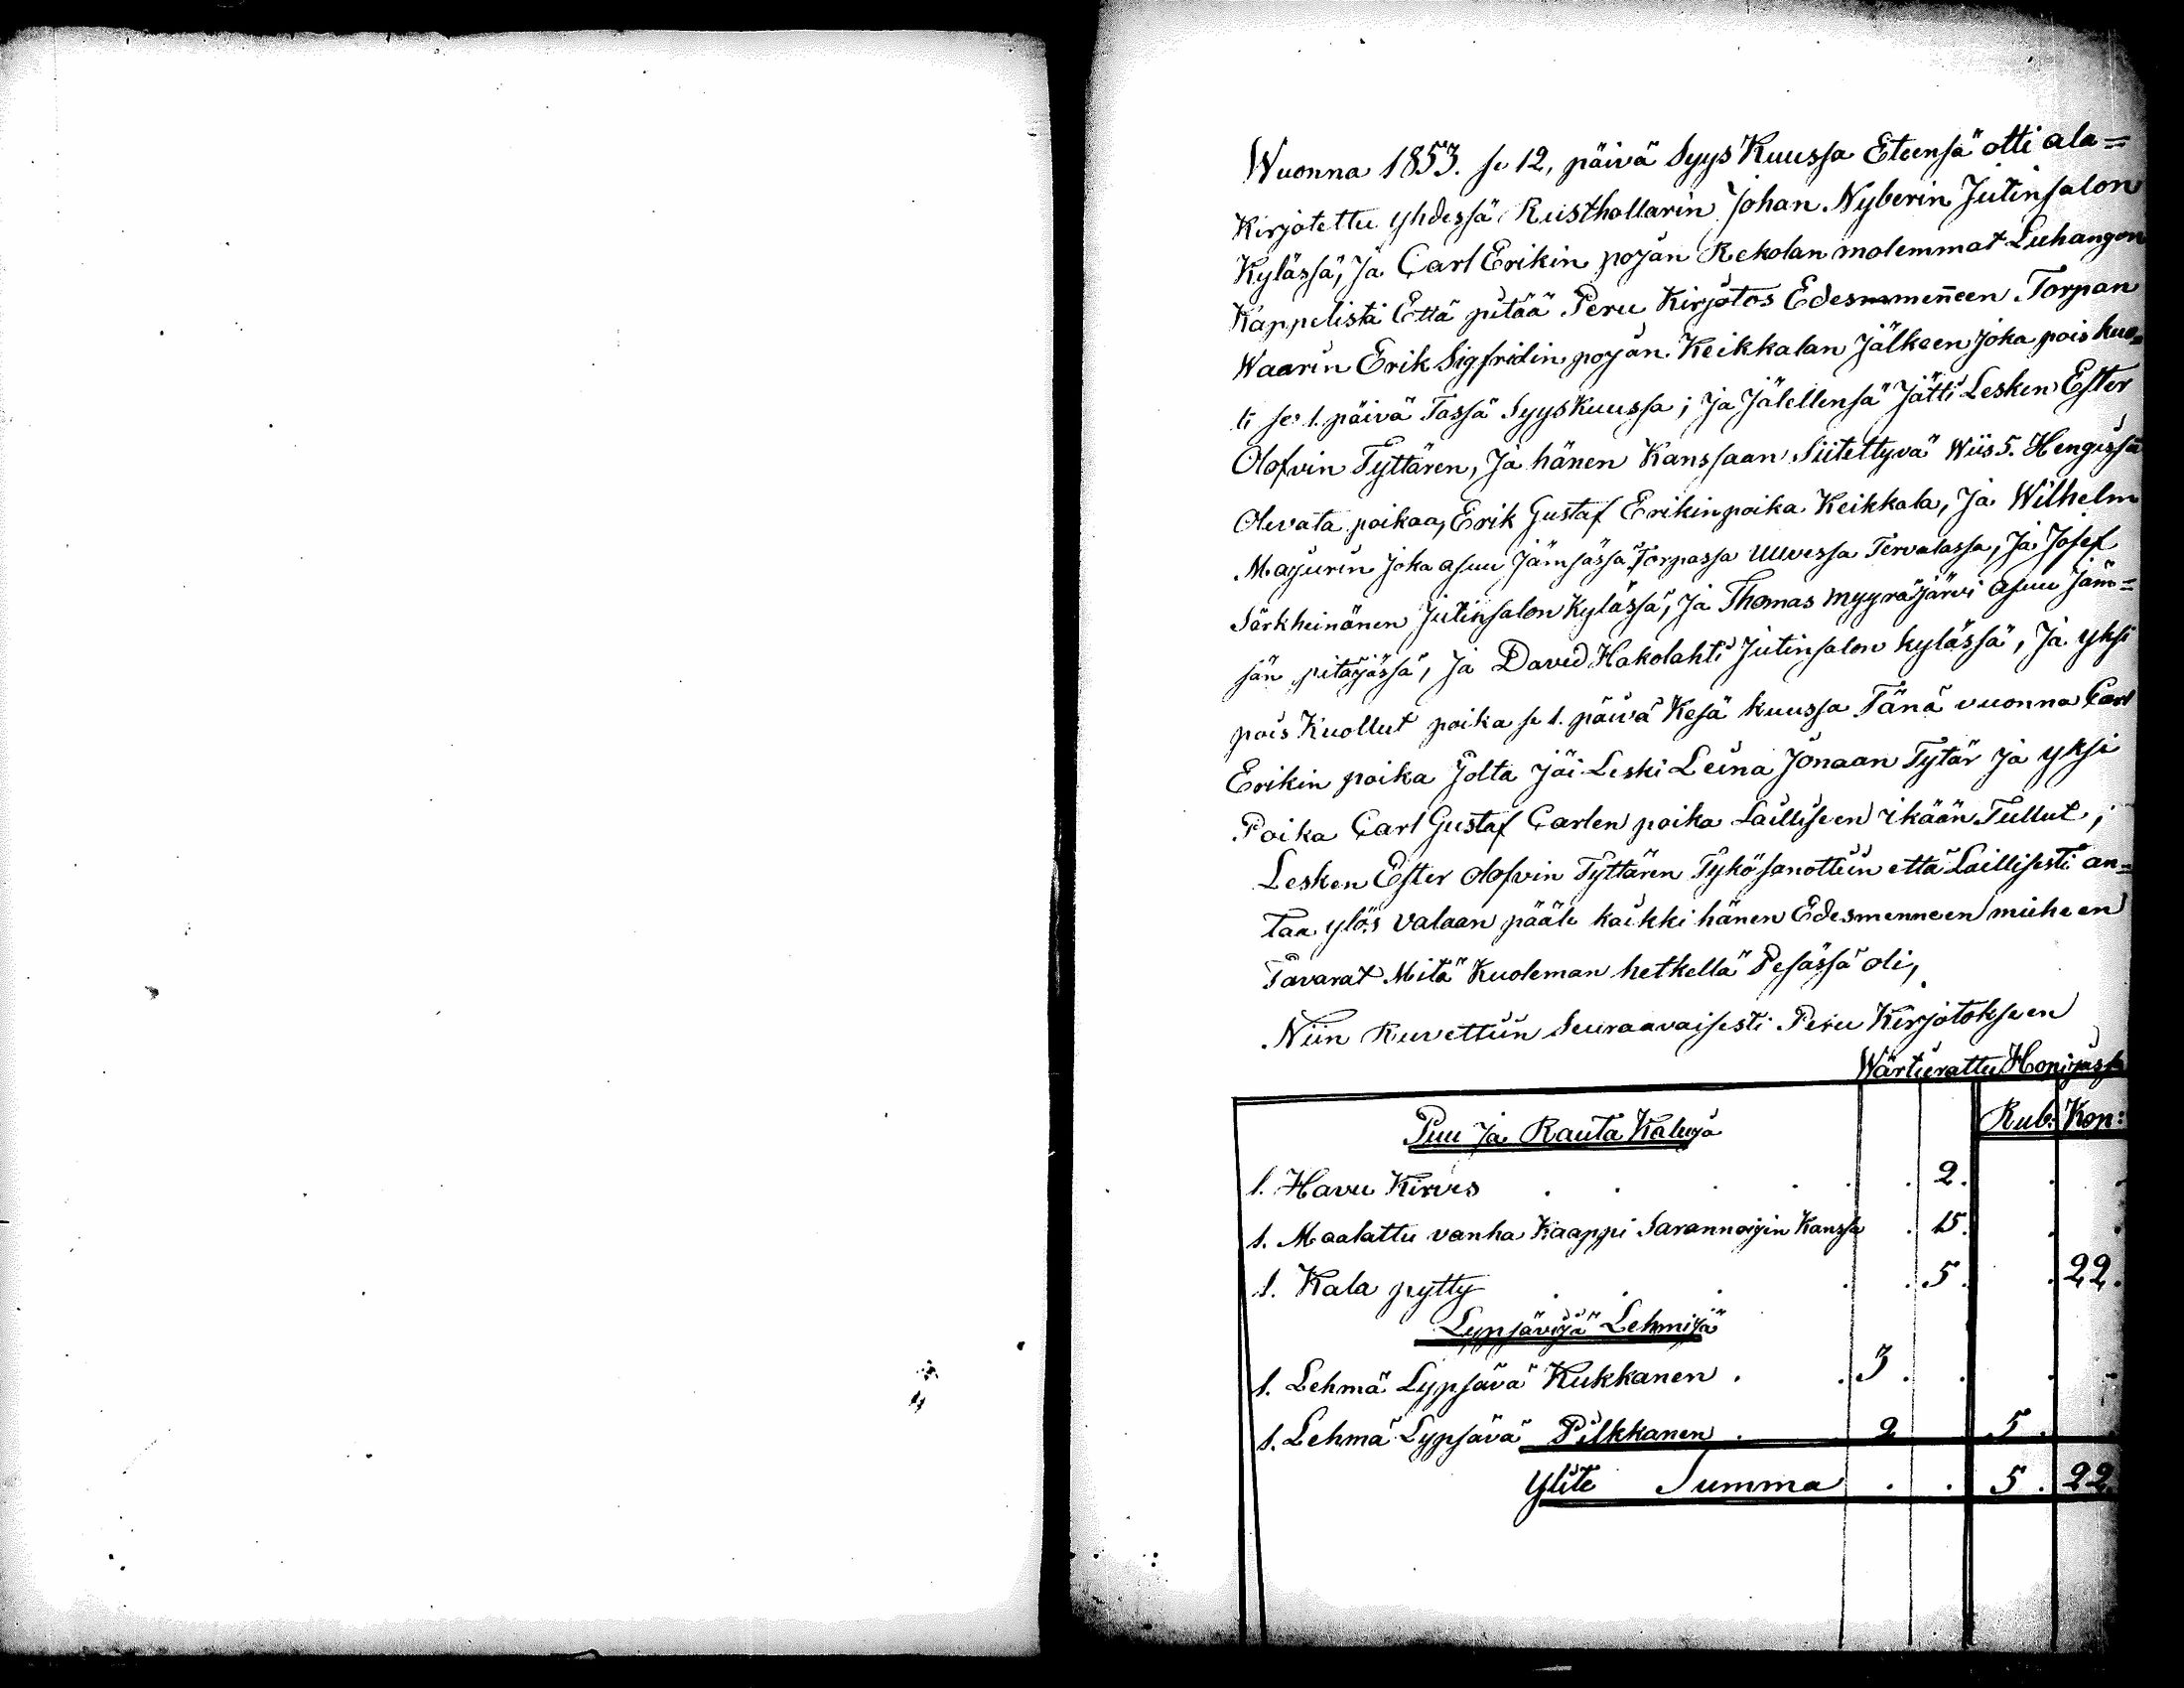 Wuonna 1853. se 12, päivä Syys Kuussa Eteensä otti ala=
Kirjotettu yhdessä Rusthollarin Johan Nyberin Jutinsalon
Kylässä, Ja Carl Erikin pojan Rekolan molemmat Luhangon
Kappelista Että pitää Peru Kirjotos Edesmenneen Torpan
Waarin Erik Sigfridin pojan Keikkalan Jälkeen Joka pois kuo=
li se 1. päivä Tassä Syys Kuussa; Ja Jälellensä Jätti Lesken Ester
Olofvin Tyttären, Ja hänen Kanssaan Siitettyvä Wiis 5. Hengissä
Olevata poikaa, Erik Gustaf Erikinpoika Keikkala, Ja Wilhelm
Majurin Joka asuu Jämsässä Torpassa Uuvessa Tervalassa, Ja Josef
Särkheinänen Jutinsalon Kylässä, Ja Thomas Myyräjärvi asuu Jäm=
sän pitäjässä, Ja David Hakolahti Jutinsalon kylässä, Ja yksi
pois Kuollut poika se 1. päivä Kesä kuussa Tänä vuonna Carl
Erikin poika Jolta Jäi Leski Leina Jonaan Tytär Ja yksi
Poika Carl Gustaf Carlen poika Lailliseen ikään Tullut;
Lesken Ester Olofvin Tyttären Tykö sanottiin että Laillisesti an=
taa ylös Valaan pääle kaikki hänen Edesmenneen mieheen
Tavarat Mitä Kuoleman hetkellä Pesässä oli,
Niin Ruvettiin Seuraavaisesti Peru Kirjotokseen
Wärtierattu Hopijassa
Puu Ja Rauta Kaluja Rub: Kop:
1. Havu Kirves . . . . . . 2. . .
1. Maalattu vanha Kaappi Sarannoijin Kanssa . 15. . .
1. Kala pytty . . . . . 5. . 22.
Lypsävijä Lehmijä
1. Lehmä Lypsävä Kukkanen . . 3 . . . .
1. Lehmä Lypsävä Pilkkanen . 2 5 .
Ylite Summa . . 5 . 22